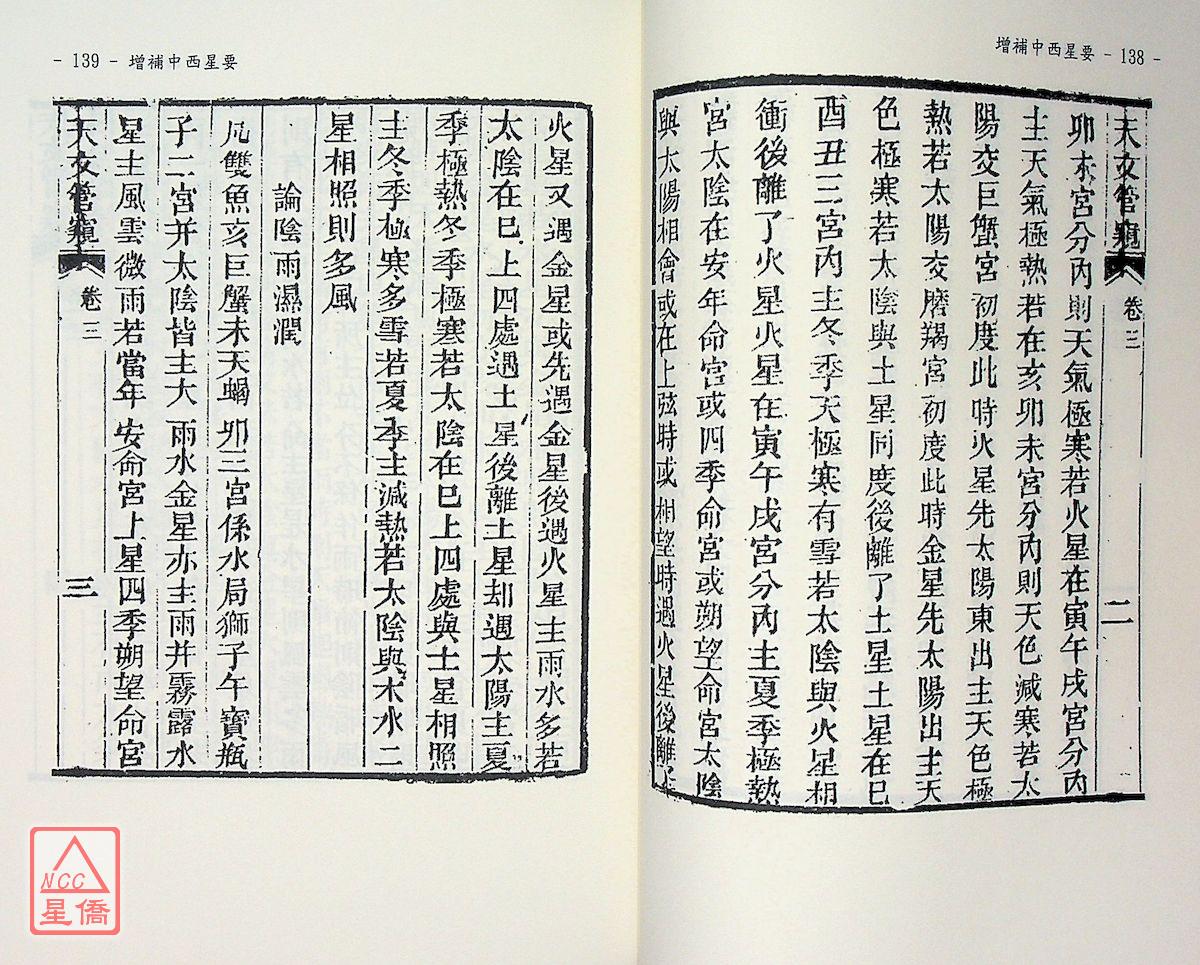 增補中西星要 - 138 -
天文管窺
卷三
二
卯未宮分內則天氣極寒若火星在寅午戌宮分內
主天氣極熱若在亥卯未宮分內則天色減寒若太
陽交巨蟹宮初度此時火星先太陽東出主天色極
熱若太陽交磨羯宮初度此時金星先太陽出主天
色極寒若太陰與土星同度後離了土星土星在巳
酉丑三宮內主冬季天極寒有雪若太陰與火星相
衝後離了火星火星在寅午戌宮分內主夏季極熱
宮太陰在安年命宮或四季命宮或朔望命宮太陰
與太陽相會或在上弦時或相望時遇火星後離了
- 139 - 增補中西星要
火星又遇金星或先遇金星後遇火星主雨水多若
太陰在巳上四處遇土星後離土星却遇太陽主夏
季極熱冬季極寒若太陰在巳上四處與土星相照
主冬季極寒多雪若夏季主減熱若太陰與木水二
星相照則多風
論陰雨濕潤
凡雙魚亥巨蟹未天蝎卯三宮係水局獅子午寶瓶
子二宮并太陰皆主大雨水金星亦主雨并霧露水
星主風雲微雨若當年安命宮上星四季朔望命宮
天文管窺
卷三
三
NCC
星僑